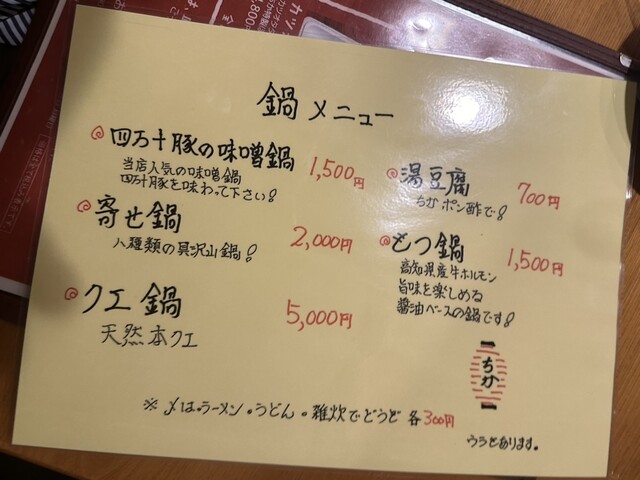 鍋メニュー
四万十豚の味噌鍋 1,500円
当店人気の味噌鍋
四万十豚を味わって下さい!
寄せ鍋 2,000円
八種類の具沢山鍋!
クエ鍋 5,000円
天然本クエ
湯豆腐 700円
ちかポン酢で!
もつ鍋 1,500円
高知県産牛ホルモン
旨味を楽しめる
醤油ベースの鍋です!
ちか
※〆はラーメン・うどん・雑炊でどうぞ 各300円
ウラもあります。